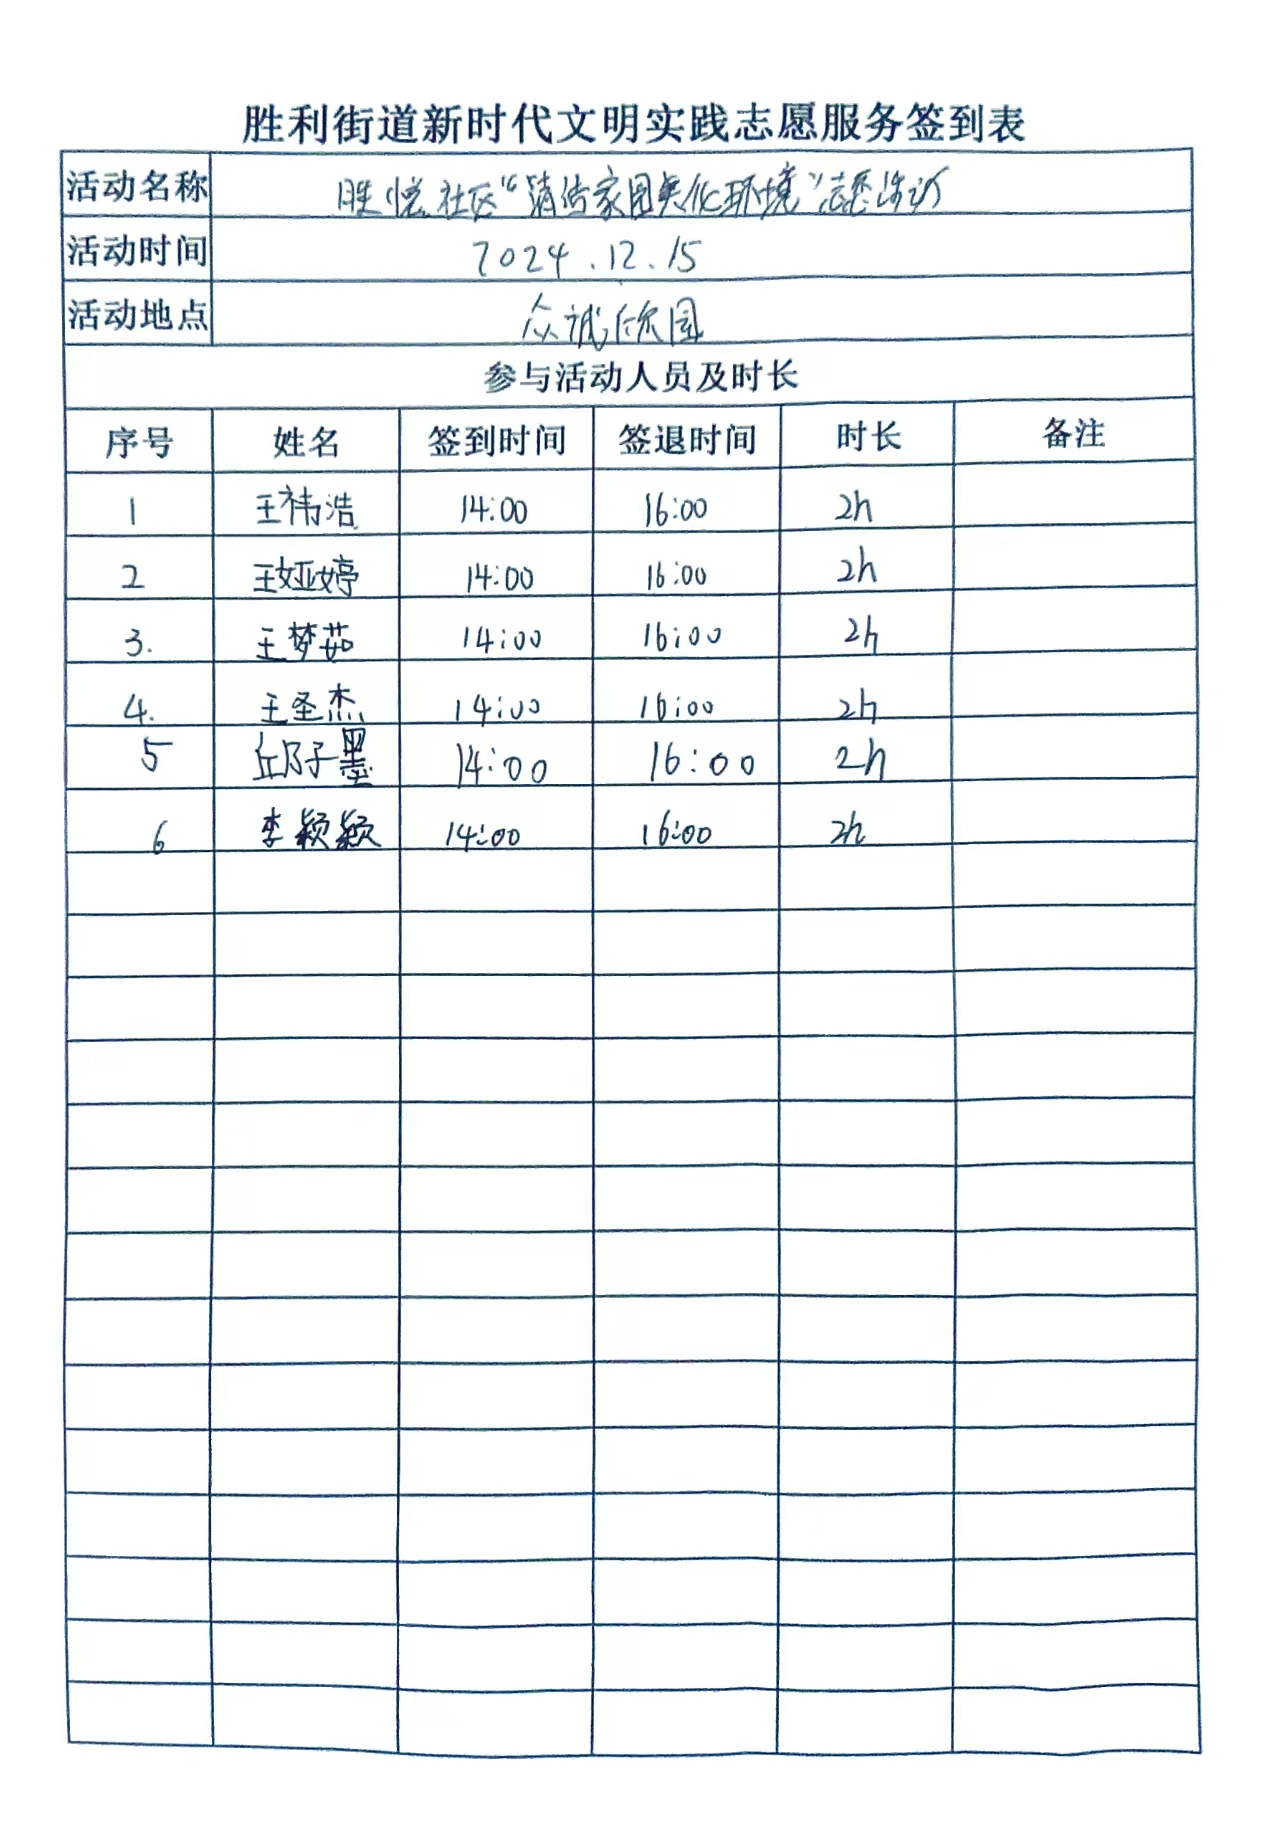 胜利街道新时代文明实践志愿服务签到表
活动名称 胜悦社区“清洁家园美化环境”志愿活动
活动时间 2024.12.15
活动地点 众诚欣园
参与活动人员及时长
序号 姓名 签到时间 签退时间 时长 备注
1 王祎浩 14:00 16:00 2h
2 王娅婷 14:00 16:00 2h
3. 王梦茹 14:00 16:00 2h
4. 王圣杰 14:00 16:00 2h
5 邱子墨 14:00 16:00 2h
6 李颖颖 14:00 16:00 2h